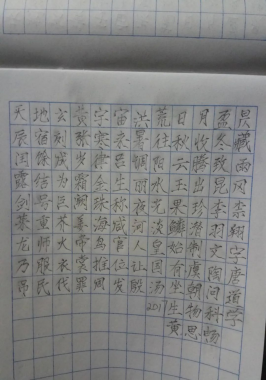 天地玄黄宇宙洪荒日月盈昃
辰宿列张寒来暑往秋收冬藏
闰馀成岁律吕调阳云腾致雨
露结为霜金生丽水玉出昆冈
剑号巨阙珠称夜光果珍李柰
菜重芥姜海咸河淡鳞潜羽翔
龙师火帝鸟官人皇始制文字
乃服衣裳推位让国有虞陶唐
吊民伐罪周发殷汤坐朝问道
2017生物科学
黄思畅